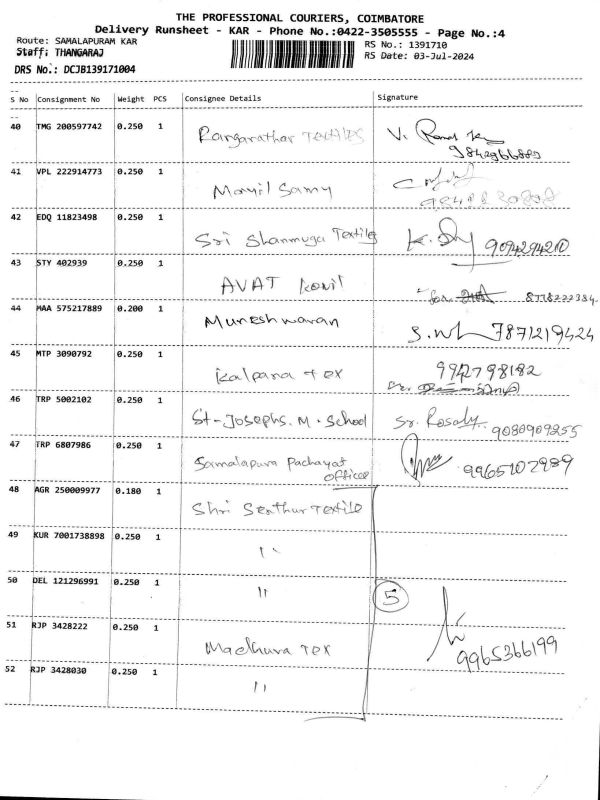 THE PROFESSIONAL COURIERS, COIMBATORE
Delivery Runsheet - KAR - Phone No.:0422-3505555 - Page No.:4
Route: SAMALAPURAM KAR
RS No.: 1391710
Staff: THANGARAJ
RS Date: 03-Jul-2024
DRS No.: DCJB139171004
S No Consignment No Weight PCS Consignee Details Signature
40 TMG 200597742 0.250 1 Ranganathar Textiles V.
9842966889
41 VPL 222914773 0.250 1 Mayil Samy
42 EDQ 11823498 0.250 1 Sri Shanmuga Textiles K.
43 STY 402939 0.250 1 AVAT Kovil
44 MAA 575217889 0.200 1 Muneshwaran 7871219424
45 MTP 3090792 0.250 1 Kalpana Tex 9942798182
46 TRP 5002102 0.250 1 St-Josephs. M. School Sr. Rosaly 9080909255
47 TRP 6807986 0.250 1 Samalapura Pachayat 9965102989
office
48 AGR 250009977 0.180 1 Shri Senthur Textile
49 KUR 7001738898 0.250 1 "
50 DEL 121296991 0.250 1 " 5
51 RJP 3428222 0.250 1 Madhura Tex 9965366199
52 RJP 3428030 0.250 1 "